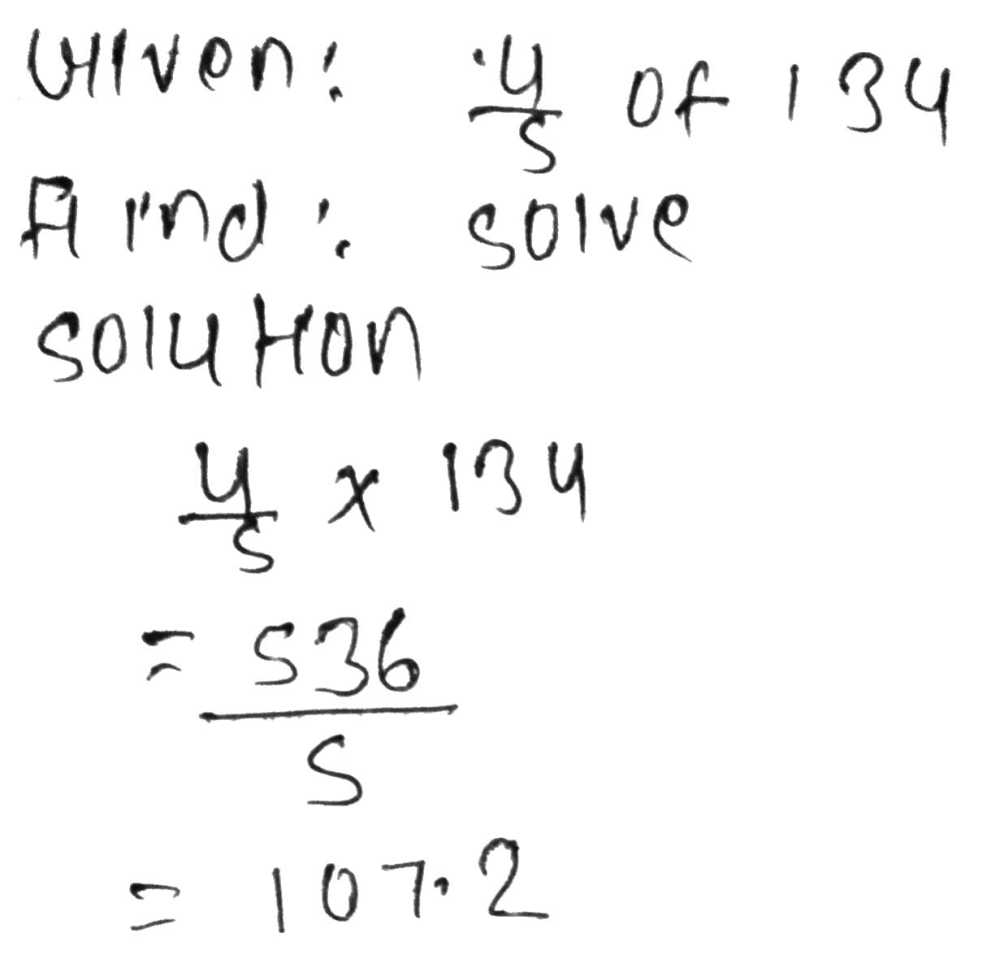 Given: 4/5 of 134
Find: solve
solution
4/5 × 134
= 536/5
= 107.2